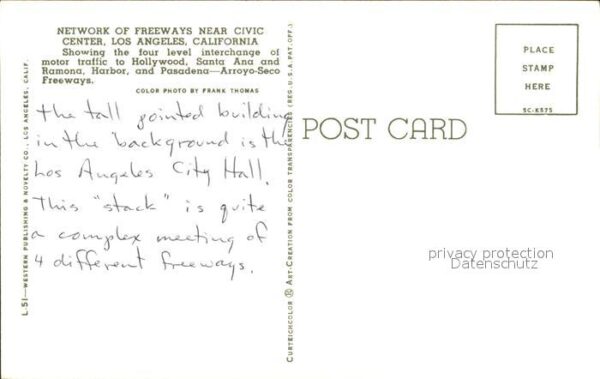 NETWORK OF FREEWAYS NEAR CIVIC
CENTER, LOS ANGELES, CALIFORNIA
Showing the four level interchange of
motor traffic to Hollywood, Santa Ana and
Ramona, Harbor, and Pasadena—Arroyo-Seco
Freeways.
COLOR PHOTO BY FRANK THOMAS
the tall pointed building
in the background is the
Los Angeles City Hall.
This "stack" is quite
a complex meeting of
4 different freeways.
L.51—WESTERN PUBLISHING & NOVELTY CO., LOS ANGELES, CALIF.
CURTEICHCOLOR ® ART-CREATION FROM COLOR TRANSPARENCIES (REG. U.S.A. PAT. OFF.)
POST CARD
PLACE
STAMP
HERE
5C-K575
privacy protection
Datenschutz